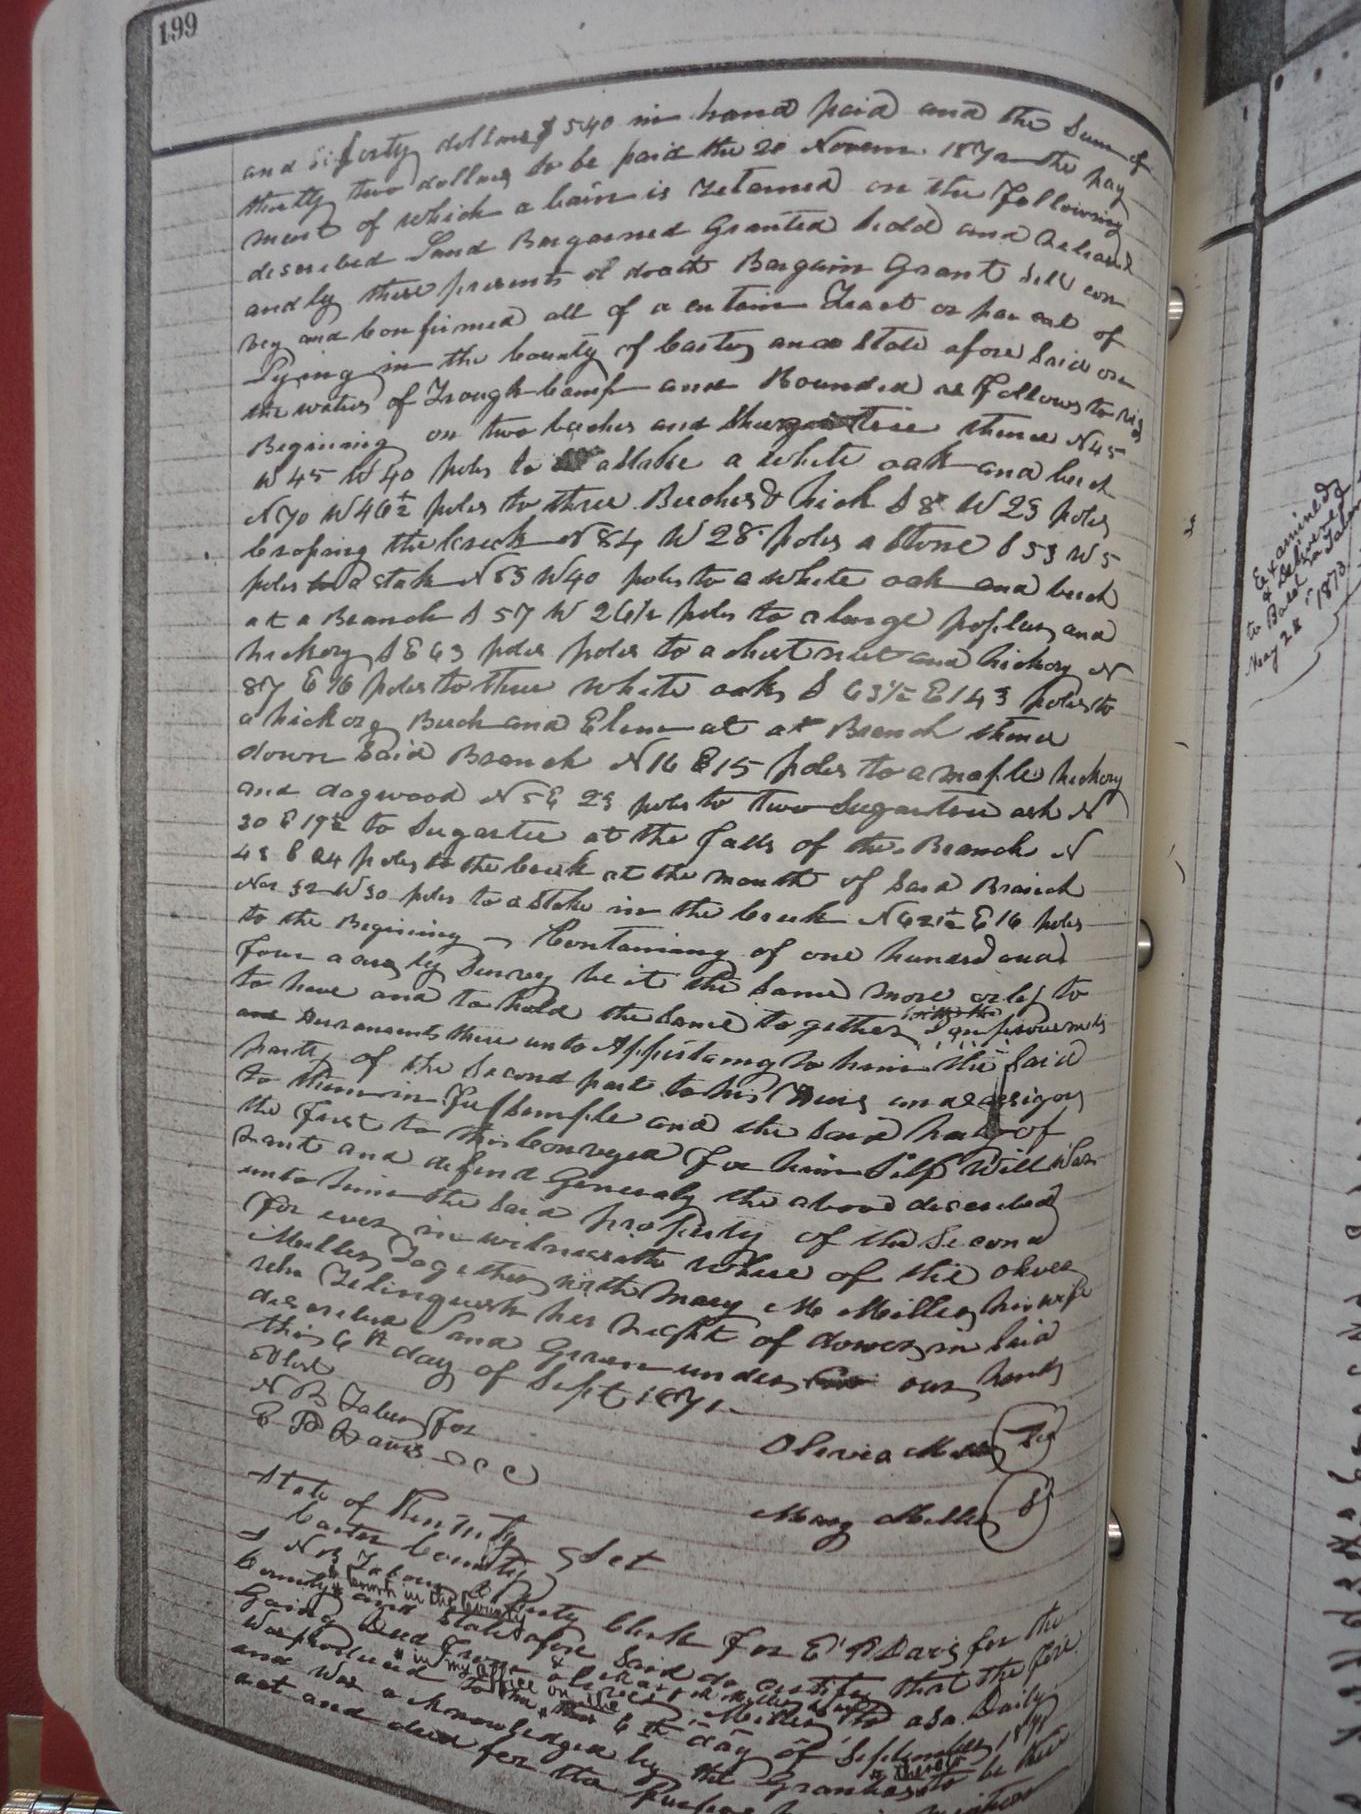 199
and forty dollars $540 in hand paid and the Sum of
thirtty two dollars to be paid the 20 Novem. 1872 the pay
ment of which a lain is retained on the following
described Land Bargained Granted Sold and Releasd
and by these presents doath Bargain Grant Sell con
vey and Confirmed all of a certain Tract or parcal of
Lying in the County of Carter and State afore Said on
the waters of Trough Camp and Bounded as Follows to wit
Begining on two beches and Shugar tree thence N45
W 45 W 40 poles to a stake a white oak and bech
N70 W46½ poles to three Beeches & hick S 8 W 23 poles
Crossing the Creek N 84 W 28 poles a Stone S 53 W 5
poles to a stak N 63 W40 poles to a white oak and bech
at a Branch S 57 W 26½ poles to a large poplar and
hickory S E 63 poles poles to a chestnut and hickory N
87 E 16 poles to three white oaks S 63½ E 143 poles to
a hickory Buch and Elem at at Branch thence
down Said Branch N16 E15 poles to a maple hickory
and dogwood N 5 E 23 poles to two Sugartree ash N
30 E 19½ to Sugartree at the Falls of the Branch N
43 E 24 poles to the Creek at the mouth of Said Branch
32 W 30 poles to a Stake in the Creek N62½ E16 poles
to the Begining Containing of one hundred and
Four acers by Survey be it the Same more or less to
to have and to hold the Same together
there unto Appertaing to him the Said
party of the Second part to his Heirs and assigns
to them in Fee Simple and the Said party of
the First to this Conveyed For him Self Will War
rant and defend Generaly the above described
unto him the Said property of the Second
For ever in witness where of the Oliver
Miller Together with Mary M Miller his wife
who Relinquesh her Right of dower in Said
described Land Given under our hands
this 6th day of Sept 1871
Attest
N B Tabor For
E P Davis C C C
Mary Miller
State of Kentucky
Carter County Sct
I N B Tabor Deputy Clerk For E P Davis for the
County and State afore Said do certify that the fore
Going Deed From
in my office on the
Was produced to me 6th day of September 187
and Was acknowledged by the Grantors to be their
act and deed for the Purpose
Examined
& Delivered
May 28 1873